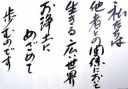 私たちは
他者との関係のなかを
生きる広い世界
お浄土に
めざめて
歩むのです